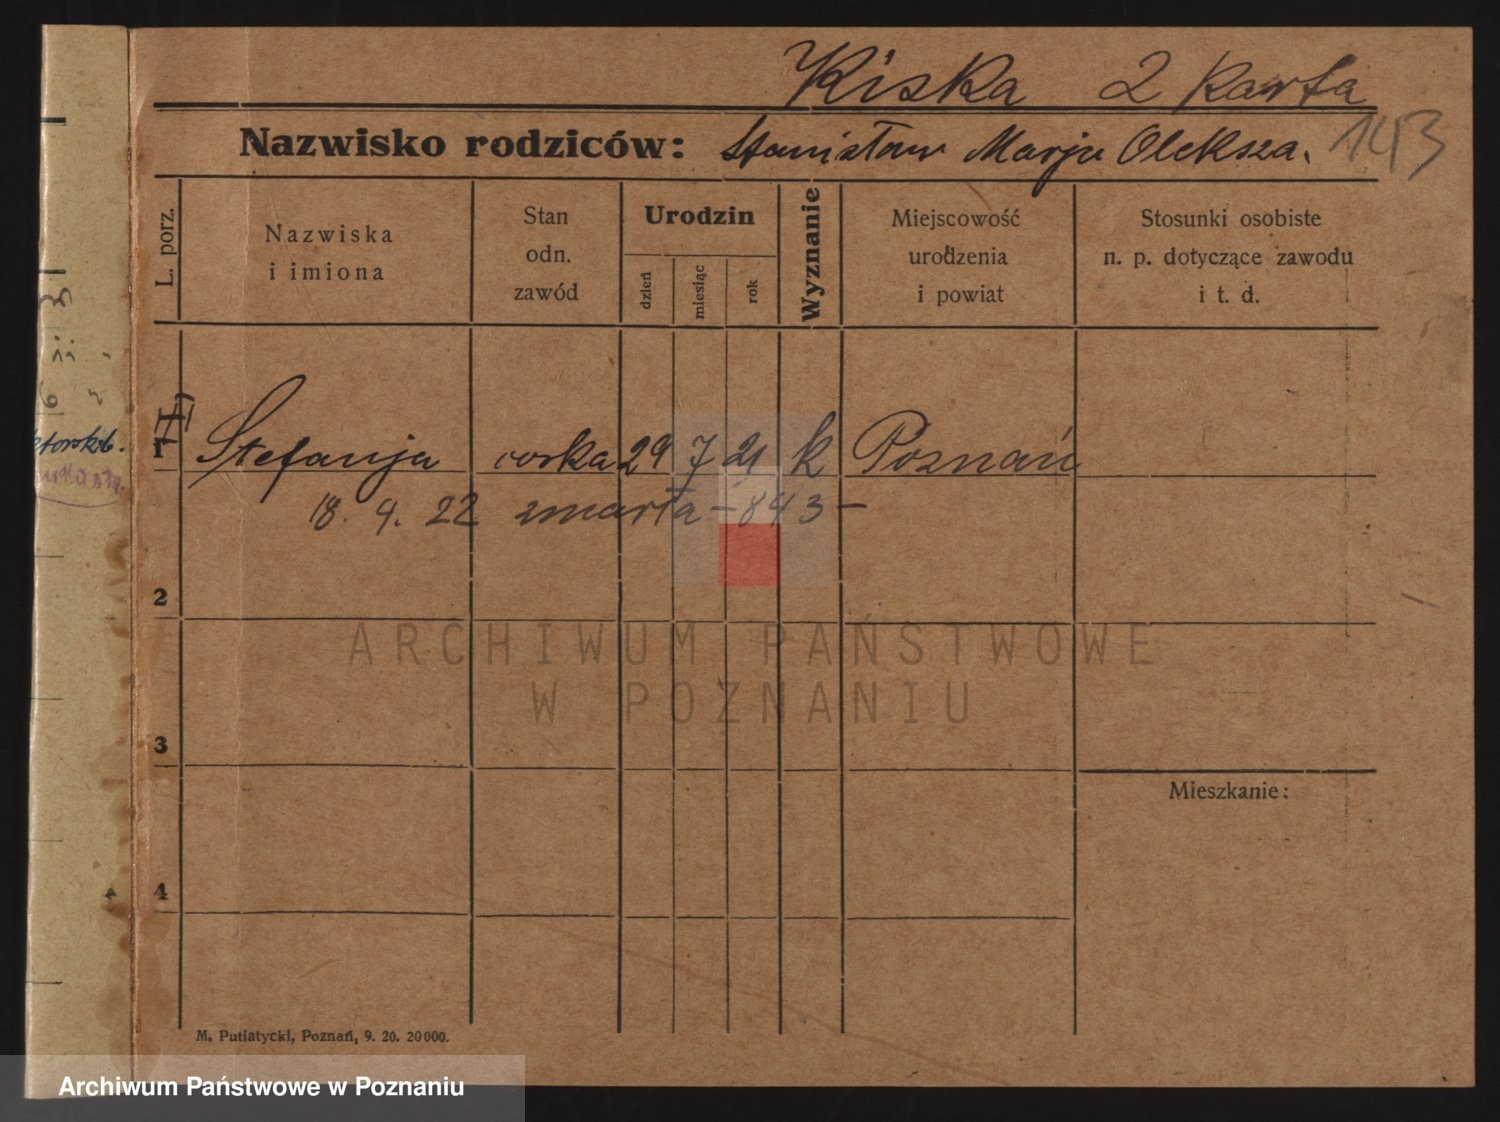 Kiska 2 Karta
Nazwisko rodziców: Stanisław Marja Oleksza. 143
L. porz.
Nazwiska
i imiona
Stan
odn.
zawód
Urodzin
dzień
miesiąc
rok
Wyznanie
Miejscowość
urodzenia
i powiat
Stosunki osobiste
n. p. dotyczące zawodu
i t. d.
1 Stefanja corka 29 7 21 k Poznań
18. 9. 22 zmarła - 843 -
2
3
4
Mieszkanie:
M. Putiatycki, Poznań, 9. 20. 20000.
ARCHIWUM PAŃSTWOWE
W POZNANIU
Archiwum Państwowe w Poznaniu